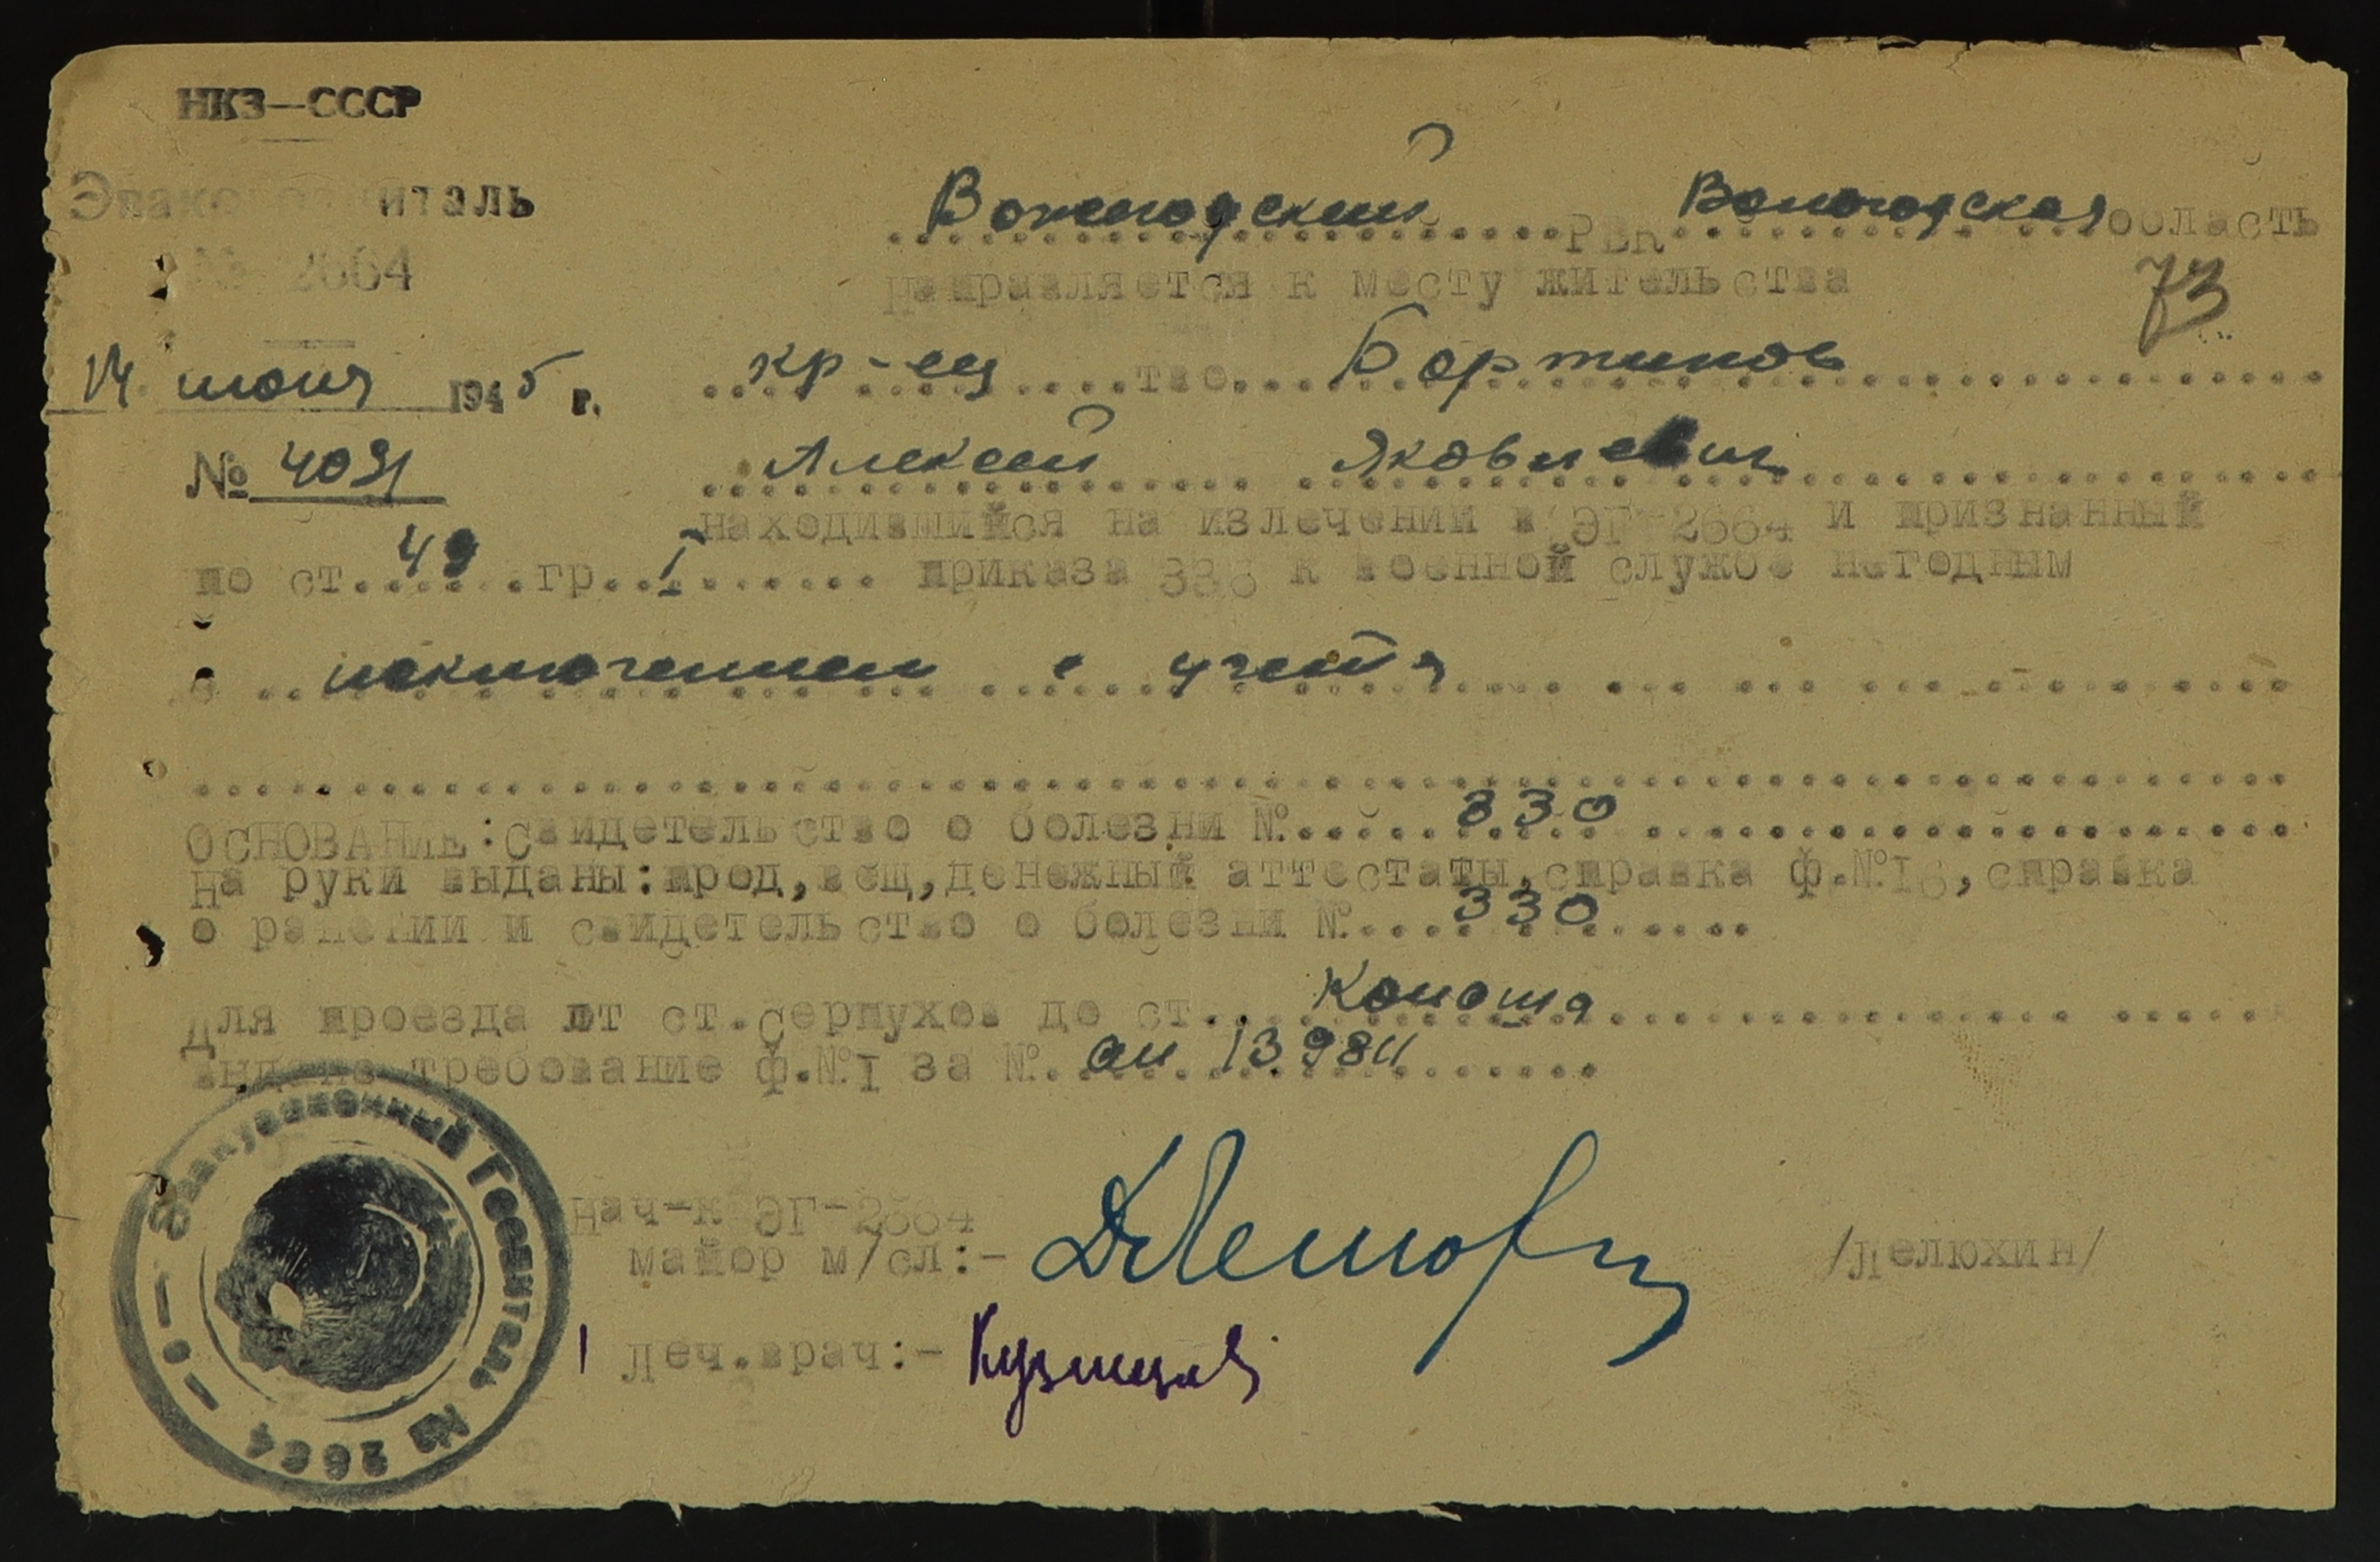 НКЗ—СССР
Эвакогоспиталь
№ 2664
14 июня 1945 г.
№ 4091
Вожегодский РВК Вологодская область
Направляется к месту жительства
73
кр-ец тво Бортиков
Алексей Яковлевич
находившийся на излечении в ЭГ-2664 и признанный
по ст. 49 гр. I приказа 336 к военной службе негодным
с исключением с учета
ОСНОВАНИЕ: Свидетельство о болезни №. 330
На руки выданы: прод, вещ, денежный аттестаты, справка ф.№16, справка
о ранении и свидетельство о болезни №. 330
Для проезда от ст. Серпухов до ст. Коноша
выдано требование ф.№I за №. 13984
Нач-к ЭГ-2664
майор м/сл:- /Лелюхин/
Леч.врач:-
Эвакуационный Госпиталь № 2664